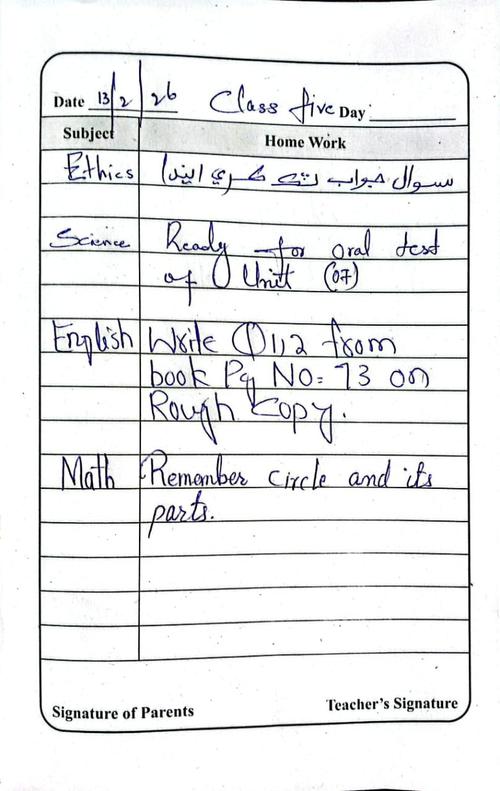 Date 13/2/26 Class five Day
Subject Home Work
Ethics سوال جواب نوٽ ڪري ايندا
Science Ready for oral test
of Unit (07)
English Write Q1,2 from
book Pg NO= 73 on
Rough Copy.
Math Remember circle and its
parts.
Signature of Parents Teacher's Signature